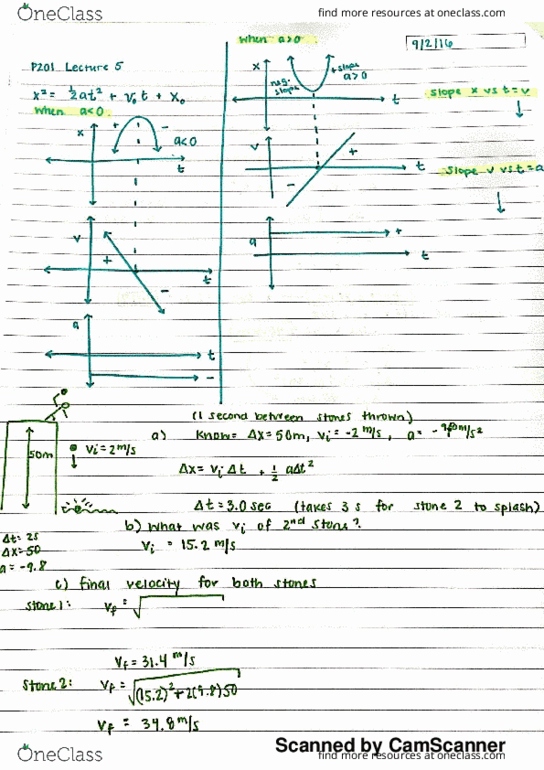 OneClass
find more resources at oneclass.com
9/2/16
P201 Lecture 5
x² = ½at² + v₀t + x₀
when a<0
x + - a<0
t
v + -
t
a
t
-
when a>0
x neg. slope + slope a>0
t
v + -
t
a +
t
slope x vs t = v
slope v vs t = a
(1 second between stones thrown)
50m
Vi = 2m/s
a) Know= Δx=50m, Vi = -2 m/s, a= - m/s²
Δx = Vi Δt + ½ aΔt²
Δt = 3.0 sec (takes 3 s for stone 2 to splash)
b) What was Vi of 2nd stone?
Δt = 2s
Δx=50
a = -9.8
Vi = 15.2 m/s
c) final velocity for both stones
stone 1: Vf = √
Vf = 31.4 m/s
stone 2: Vf = √(15.2)² + 2(9.8)50
Vf = 34.8 m/s
Scanned by CamScanner
OneClass
find more resources at oneclass.com